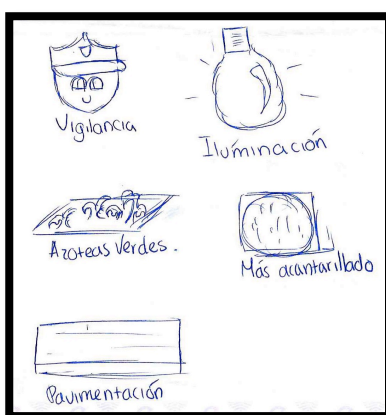 Vigilancia
Iluminación
Azoteas Verdes.
Más acantarillado
Pavimentación